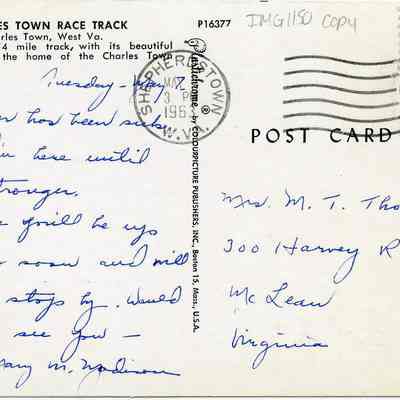 ES TOWN RACE TRACK
rles Town, West Va.
4 mile track, with its beautiful
the home of the Charles Town
P16377
IMG1150 Copy
Plastichrome ® by COLOURPICTURE PUBLISHERS, INC., Boston 15, Mass., U.S.A.
SHEPHERDSTOWN
MAY
3 P
1963
W.VA.
POST CARD
Tuesday - May 7
has been sick
here until
stronger.
you'll be up
soon and will
stop by. Would
see you —
Mary M. Madison
Mrs. M. T. Tho
300 Harvey R
McLean
Virginia